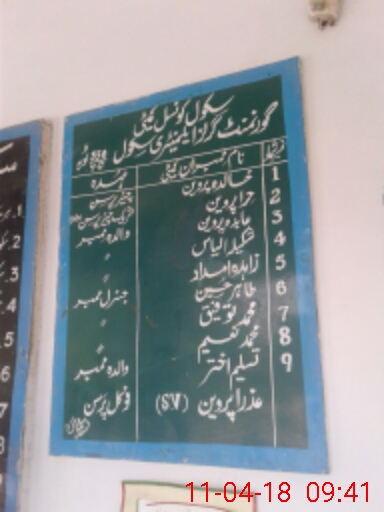 سکول کونسل کمیٹی
گورنمنٹ گرلز ایلیمنٹری سکول
نمبر نام ممبران کمیٹی عہدہ
1 خالدہ پروین چیئر پرسن
2 حرا پروین
3 عابدہ پروین والدہ ممبر
4 شکیلہ الیاس "
5 زاہدہ امداد "
6 طاہر حسین جنرل ممبر
7 محمد توفیق "
8 محمد نعیم "
9 تسلیم اختر والدہ ممبر
عذرا پروین (SV) فوکل پرسن
2.
3.
4.
5
6
7
8
9
11-04-18 09:41